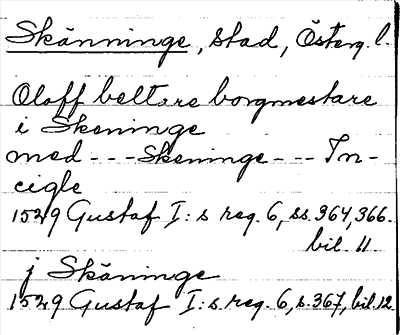 Skänninge, stad, Österg. l.
Oloff beltare borgmestare
i Skeninge
med - - - Skeninge - - - In-
cigle
1529 Gustaf I:s reg. 6, ss. 364, 366.
bil. 11
j Skäninge
1529 Gustaf I:s reg. 6, s. 367, bil. 12